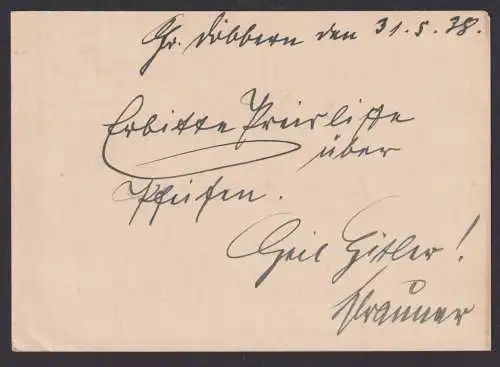 Gr. Döbbern den 31.5.38.
Erbitte Preisliste
über
Pfeifen.
Heil Hitler!